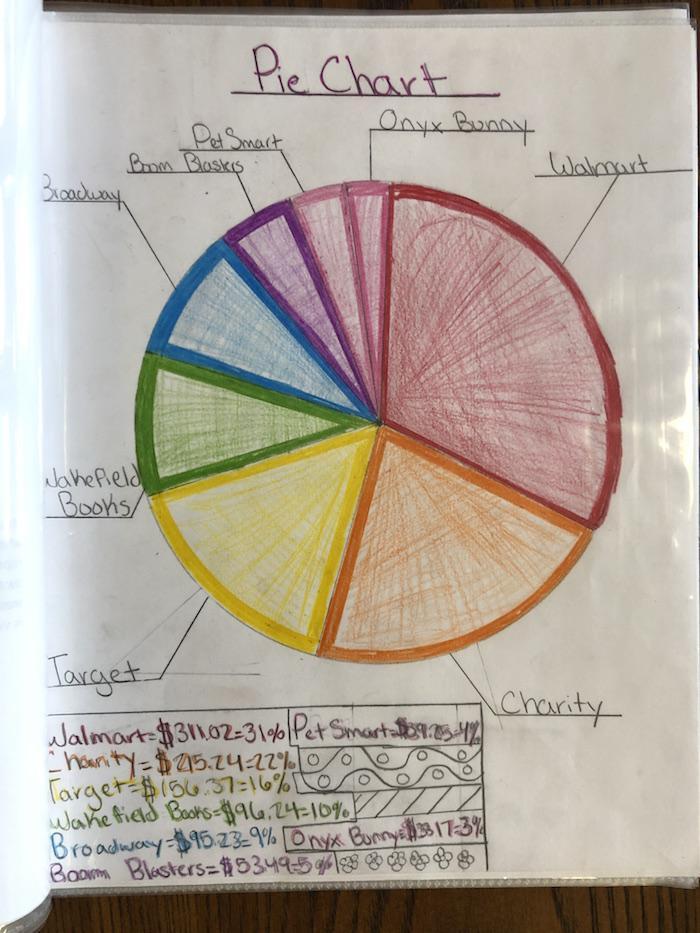 Pie Chart
Onyx Bunny
PetSmart
Boom Blasters
Walmart
Broadway
Wakefield
Books
Target
Charity
Walmart=$311.02=31%
Charity=$215.24=22%
Target=$156.37=16%
Wakefield Books=$96.24=10%
Broadway=$95.23=9%
Boom Blasters=$53.49=5%
Pet Smart=$39.25=4%
Onyx Bunny=$33.17=3%